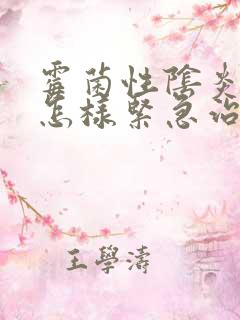 霉菌性陰炎
怎樣緊急治
王學濤